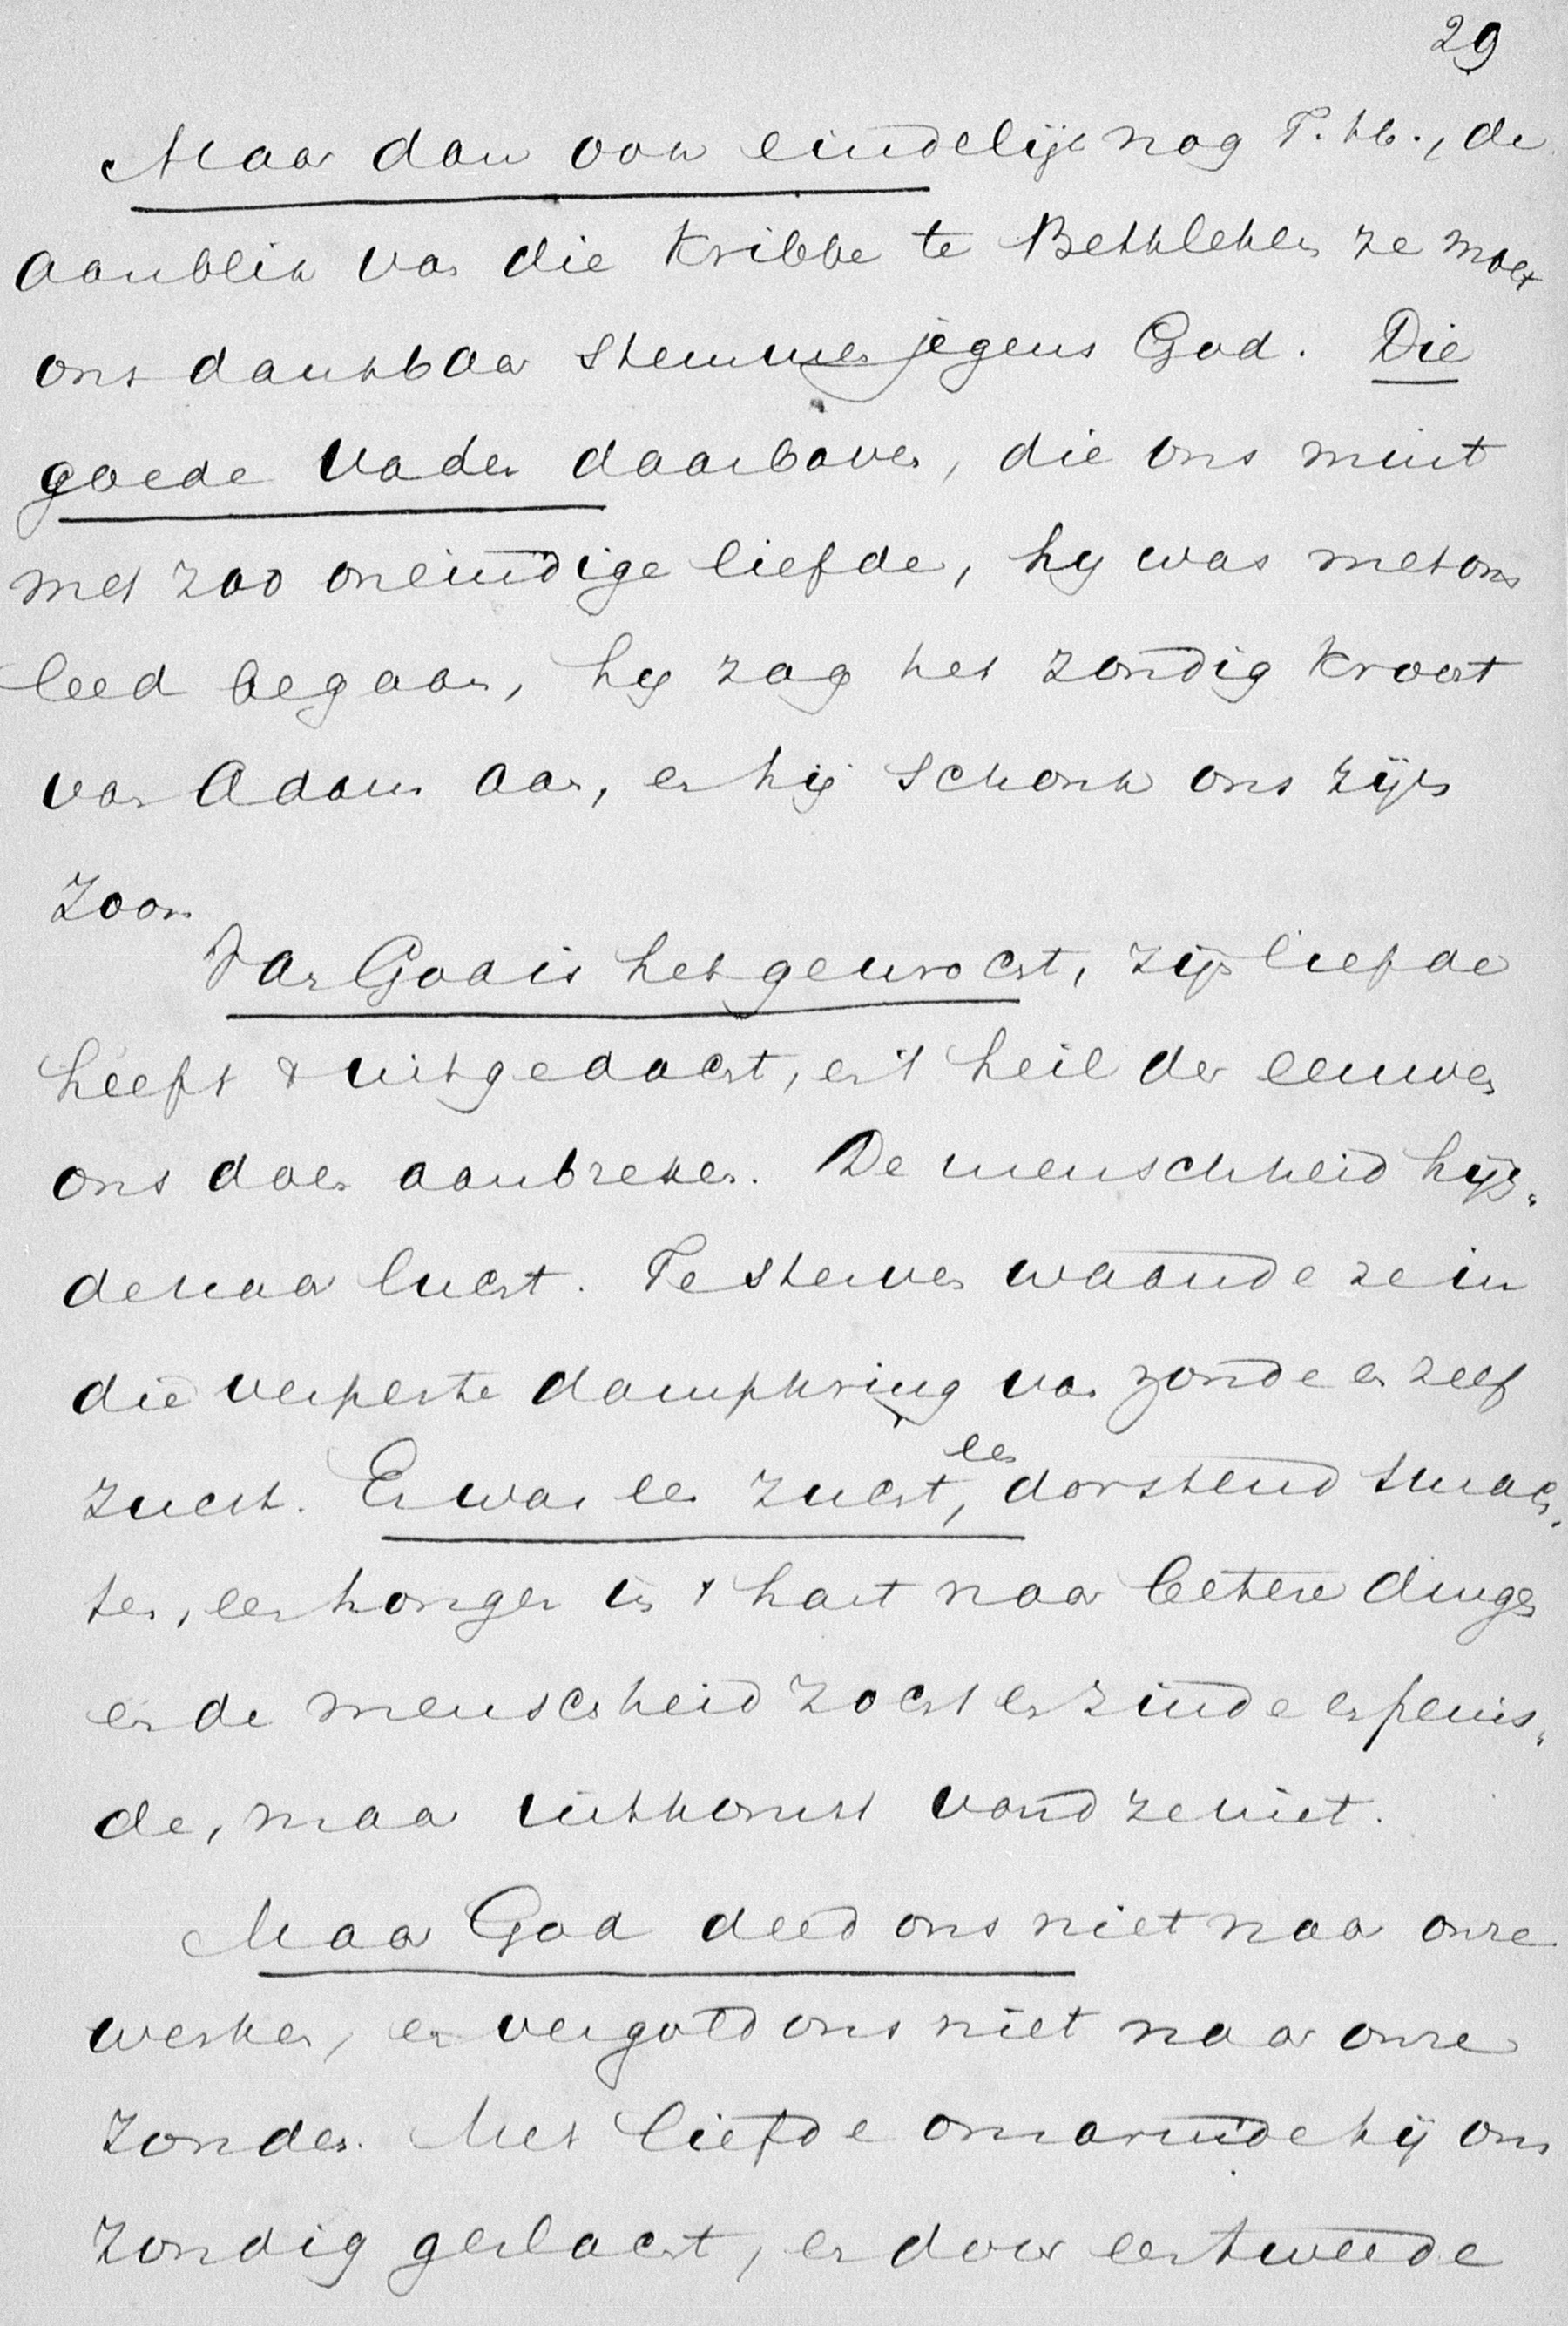 29
Maar dan ook eindelijk nog T. H., de
aanblik van die Kribbe te Bethlehem ze moet
ons dankbaar stemmen jegens God. Die
goede Vader daarboven, die ons mint
met zoo oneindige liefde, hij was met ons
leed begaan, hij zag het zondig kroost
van Adam aan, en hij schonk ons zijn
Zoon.
Van God is het gewrocht, zijn liefde
heeft 't uitgedacht, en 't heil der eeuwen
ons doen aanbreken. De menschheid hijg-
de naar lucht. Te sterven waande ze in
die verpeste dampkring van zonde en zelf
zucht. Er was een zucht, een dorstend smach-
ten, een honger in 't hart naar betere dingen
en de menschheid zocht en zinde en peins-
de, maar uitkomst vond ze niet.
Maar God deed ons niet naar onze
werken, en vergold ons niet naar onze
zonden. Met liefde omarmde hij ons
zondig geslacht, en door een tweede